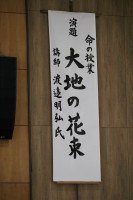 命の授業
演題
大地の花束
講師 渡邉明弘氏